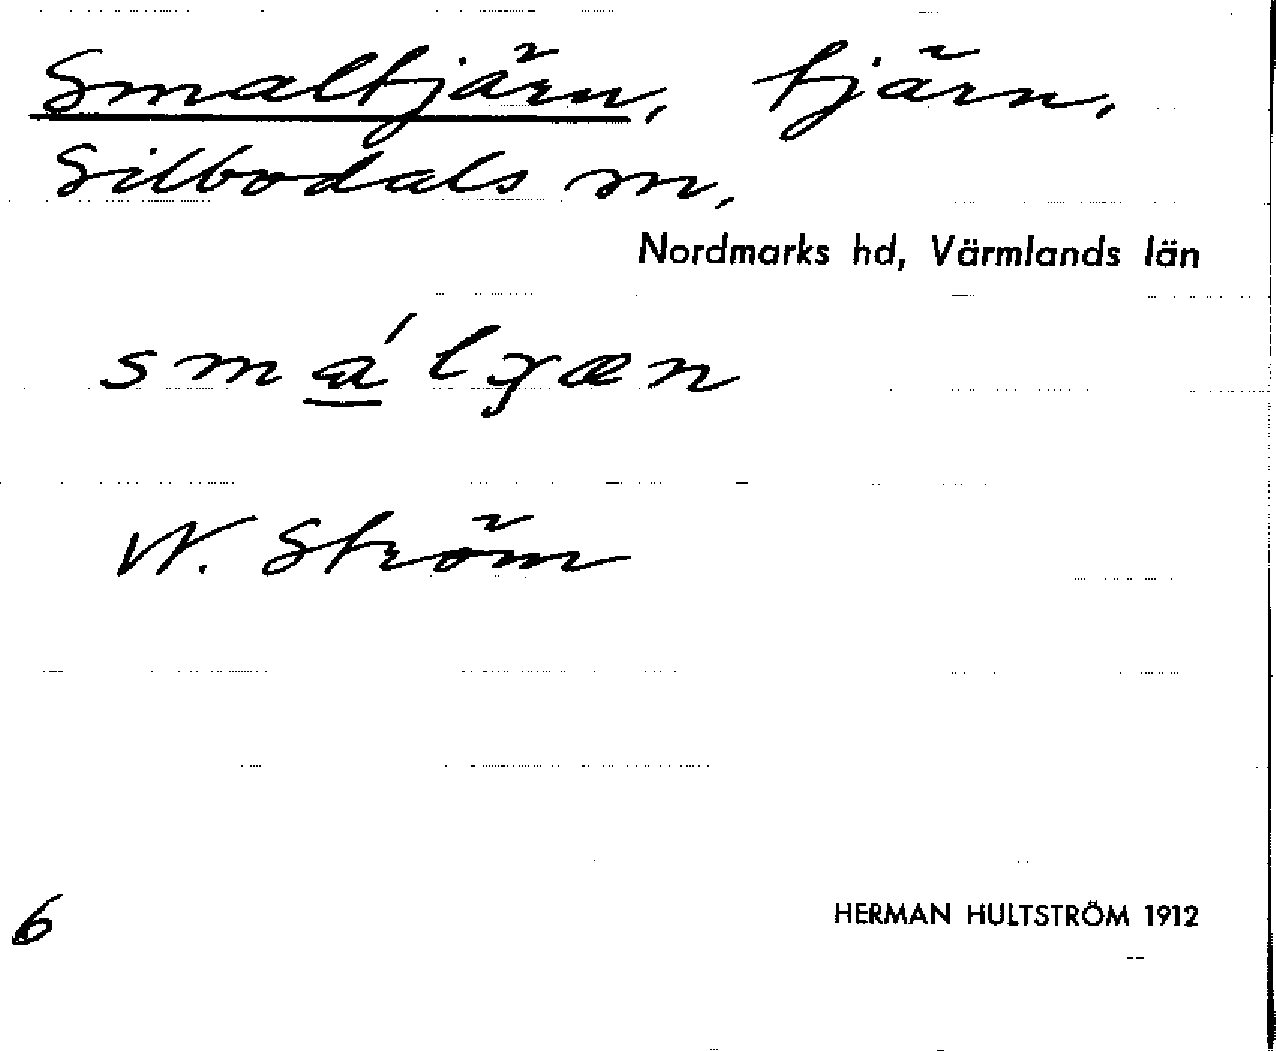 Smaltjärn, tjärn,
Silbodals sn,
Nordmarks hd, Värmlands län
smá̱lɟæn
W. Ström
6
HERMAN HULTSTRÖM 1912